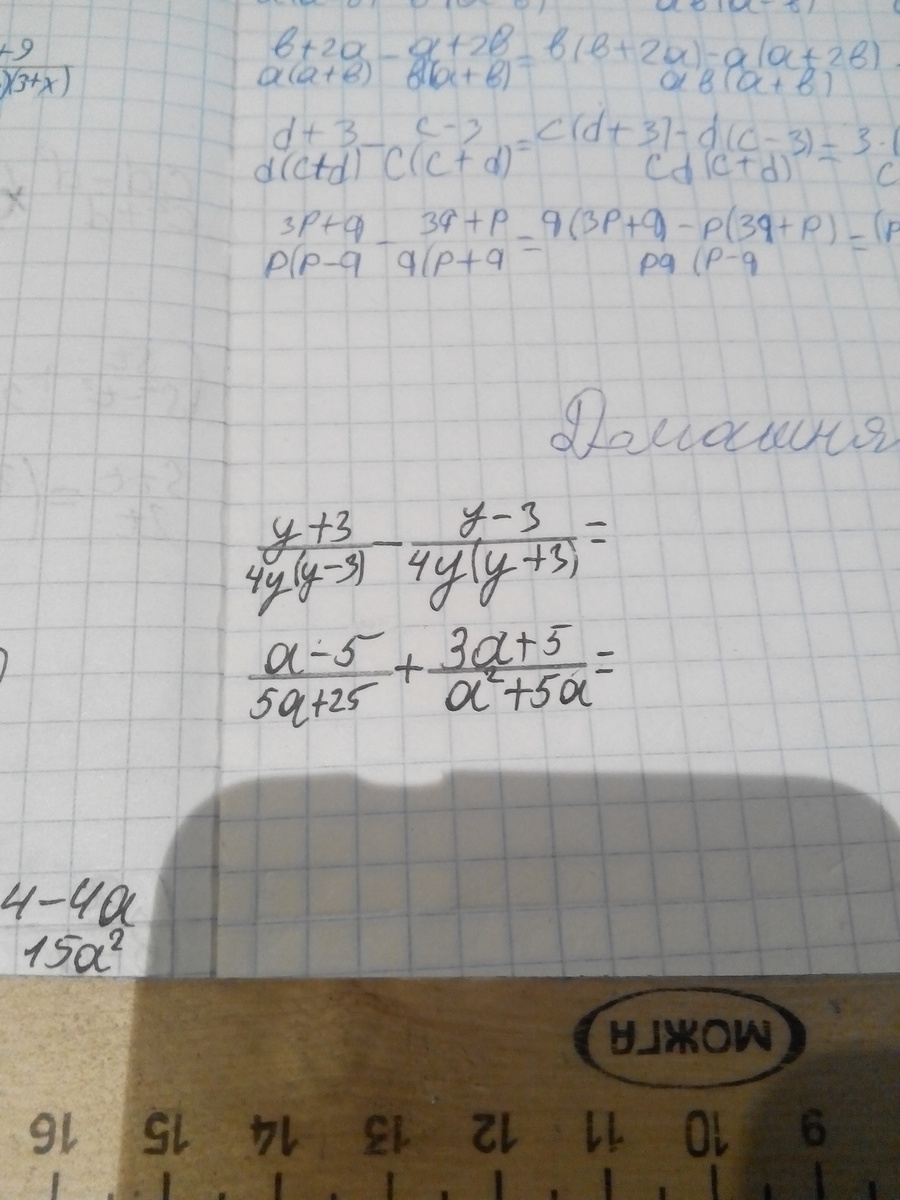 +9
)(3+x)
b+2a/a(a+b) - a+2b/b(a+b) = b(b+2a)-a(a+2b)/ab(a+b)
d+3/d(c+d) - c-3/c(c+d) = c(d+3)-d(c-3)/cd(c+d) = 3·(/c
3p+q/p(p-q - 3q+p/q(p+q = q(3p+q)-p(3q+p)/pq(p-q = (p
Домашня
y+3/4y(y-3) - y-3/4y(y+3) =
a-5/5a+25 + 3a+5/a²+5a =
4-4a
15a²
МОЖГА
16 15 14 13 12 11 10 9